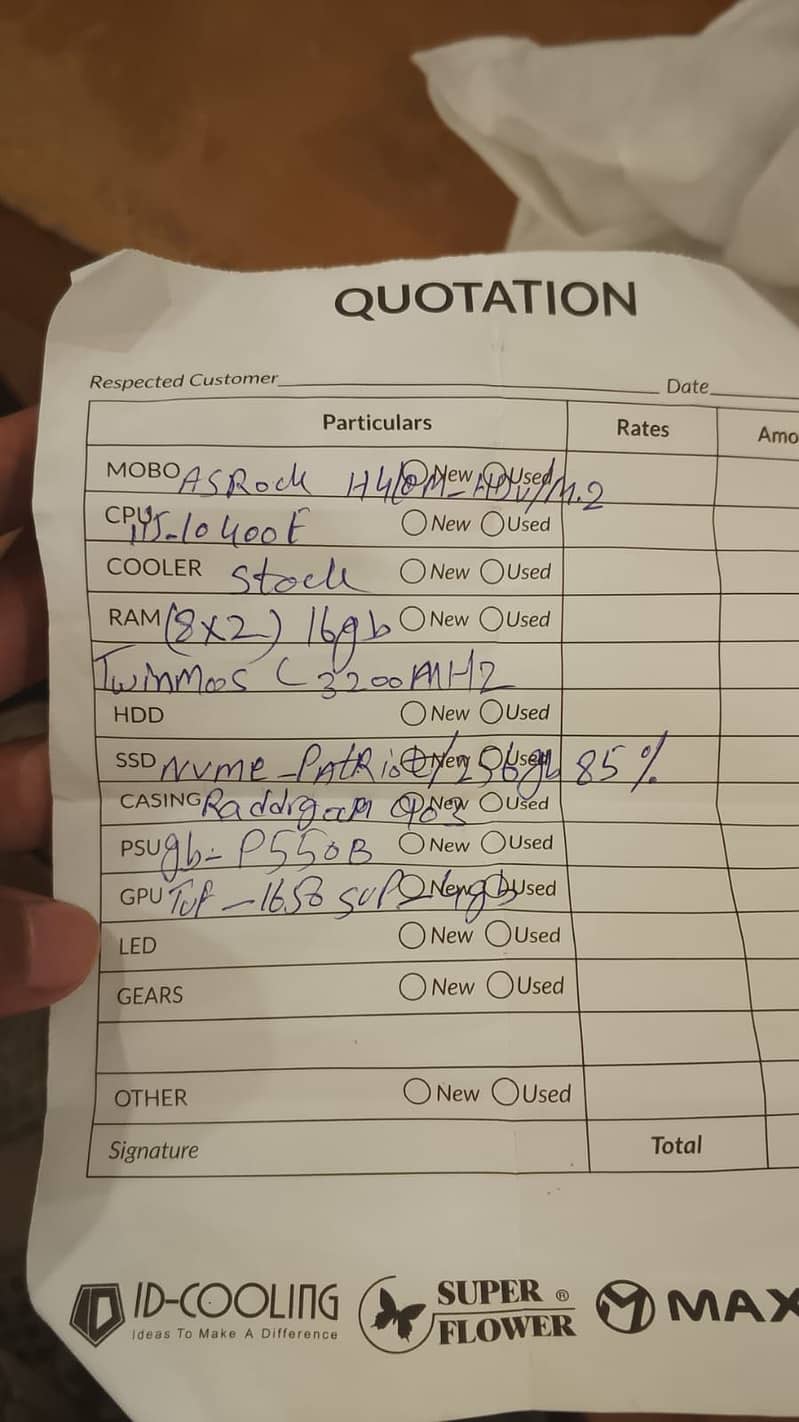 QUOTATION
Respected Customer Date
Particulars Rates Amo
MOBO ASRock H410M-HDV/M.2 New Used
CPU i5-10400F New Used
COOLER Stock New Used
RAM (8x2) 16gb New Used
TwinMos (3200MHZ
HDD New Used
SSD NVME-PATRiot/256gb New Used 85%
CASING New Used
PSU gb-P550B New Used
GPU Tuf-1650 sup New Used
LED New Used
GEARS New Used
OTHER New Used
Signature Total
ID-COOLING
Ideas To Make A Difference
SUPER ®
FLOWER
MAX